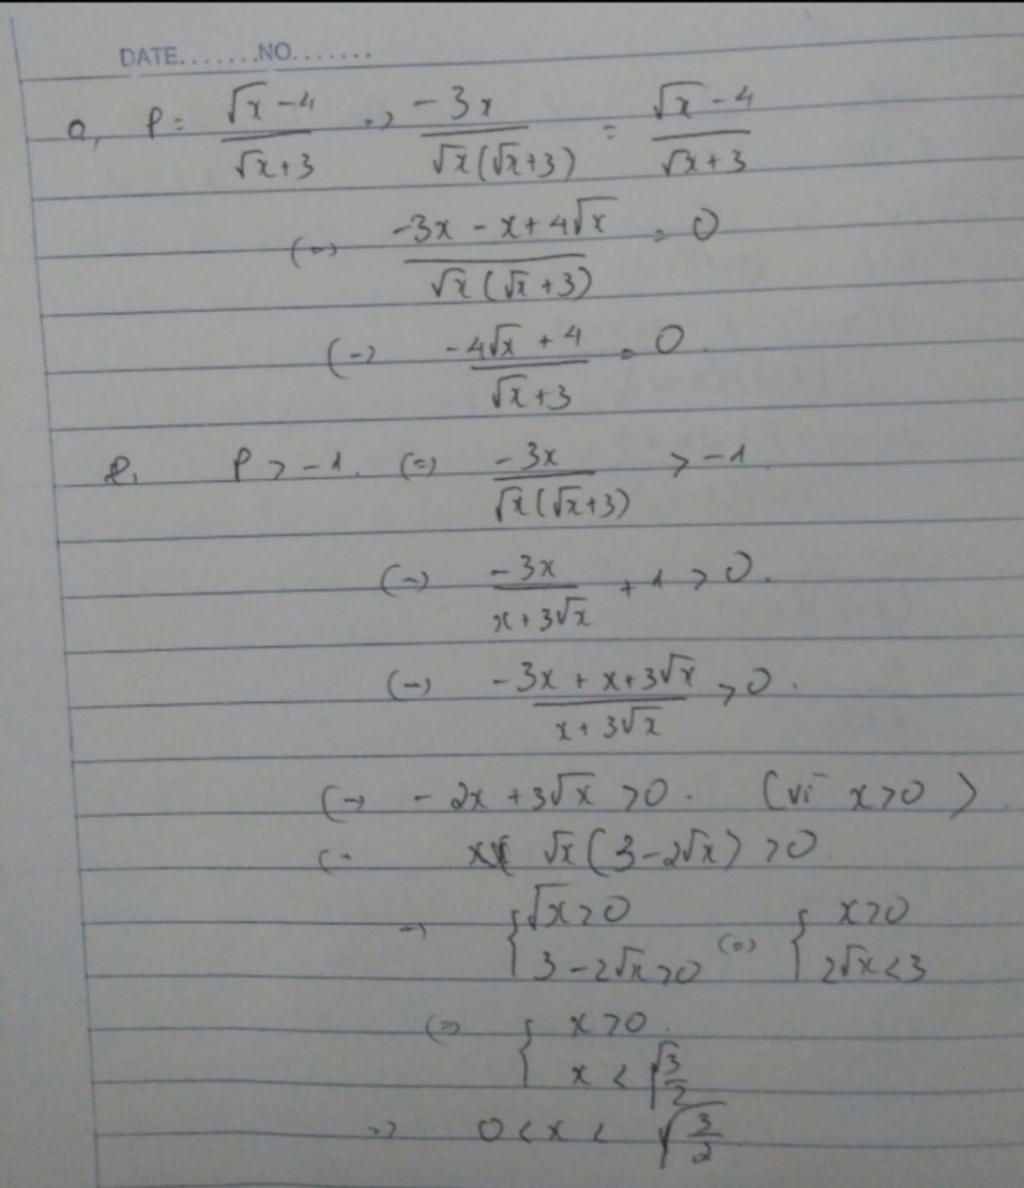 DATE.......NO.......
a, P = (√x - 4)/(√x + 3) => (-3x)/(√x(√x+3)) = (√x - 4)/(√x + 3)
(=) (-3x - x + 4√x)/(√x(√x+3)) = 0
(=) (-4√x + 4)/(√x+3) = 0.
P > -1. (=) (-3x)/(√x(√x+3)) > -1.
(=) (-3x)/(x + 3√x) + 1 > 0.
(=) (-3x + x + 3√x)/(x + 3√x) > 0.
(=) - 2x + 3√x > 0. (vì x > 0).
(= √x(3 - 2√x) > 0
=> { √x > 0 ; 3 - 2√x > 0 (=) { x > 0 ; 2√x < 3
(=) { x > 0. ; x < √(3/2)
=> 0 < x < √(3/2)